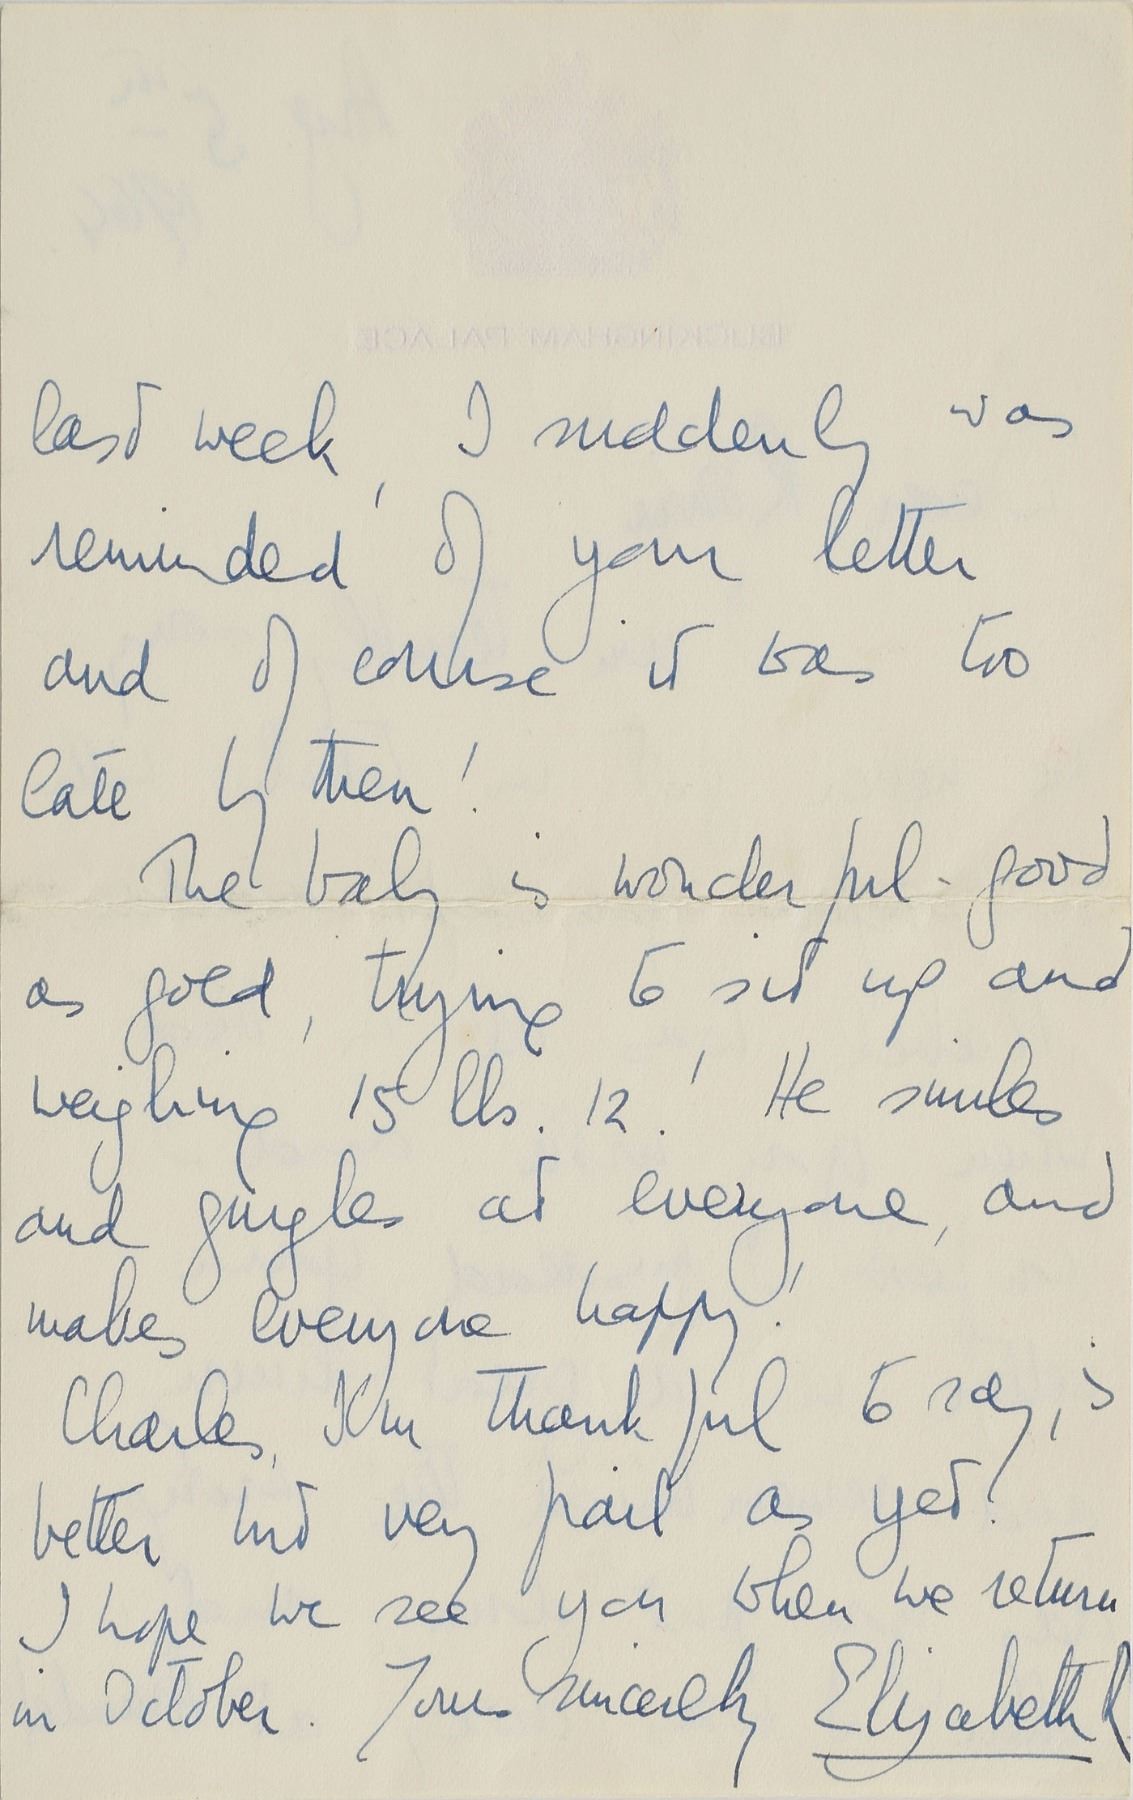 BUCKINGHAM PALACE
last week, I suddenly was
reminded of your letter
and of course it was too
late by then!
The baby is wonderful - good
as gold, trying to sit up and
weighing 15 lbs. 12! He smiles
and gurgles at everyone, and
makes everyone happy!
Charles, I'm thankful to say, is
better but very frail as yet.
I hope we see you when we return
in October. Yours sincerely Elizabeth R